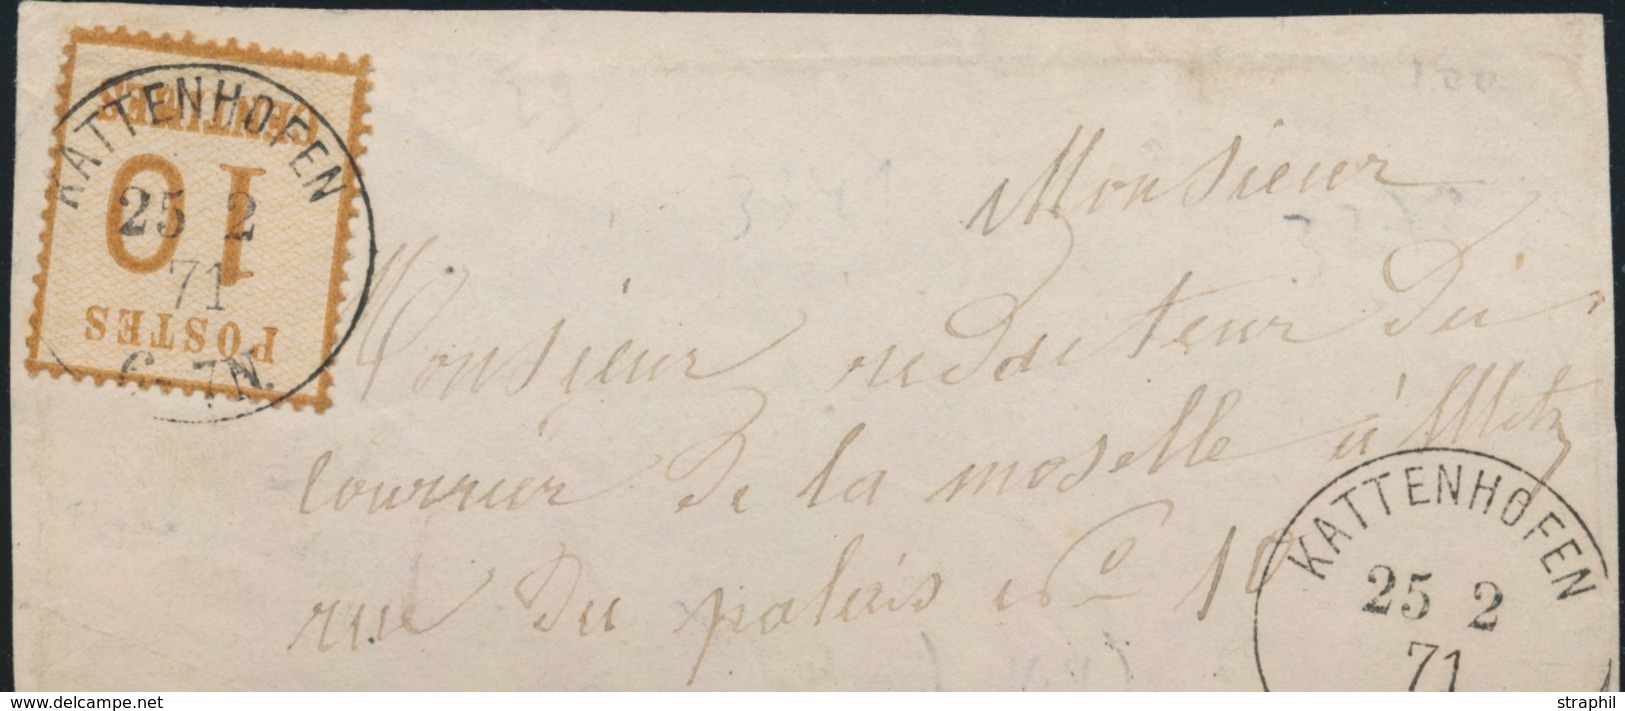 KATTENHOFEN
CENTIMES
10
25 2
71
POSTES
6-7N.
Monsieur
Monsieur redacteur du
courrier de la moselle à Metz
rue du palais No 10
KATTENHOFEN
25 2
71
STRAPHIL